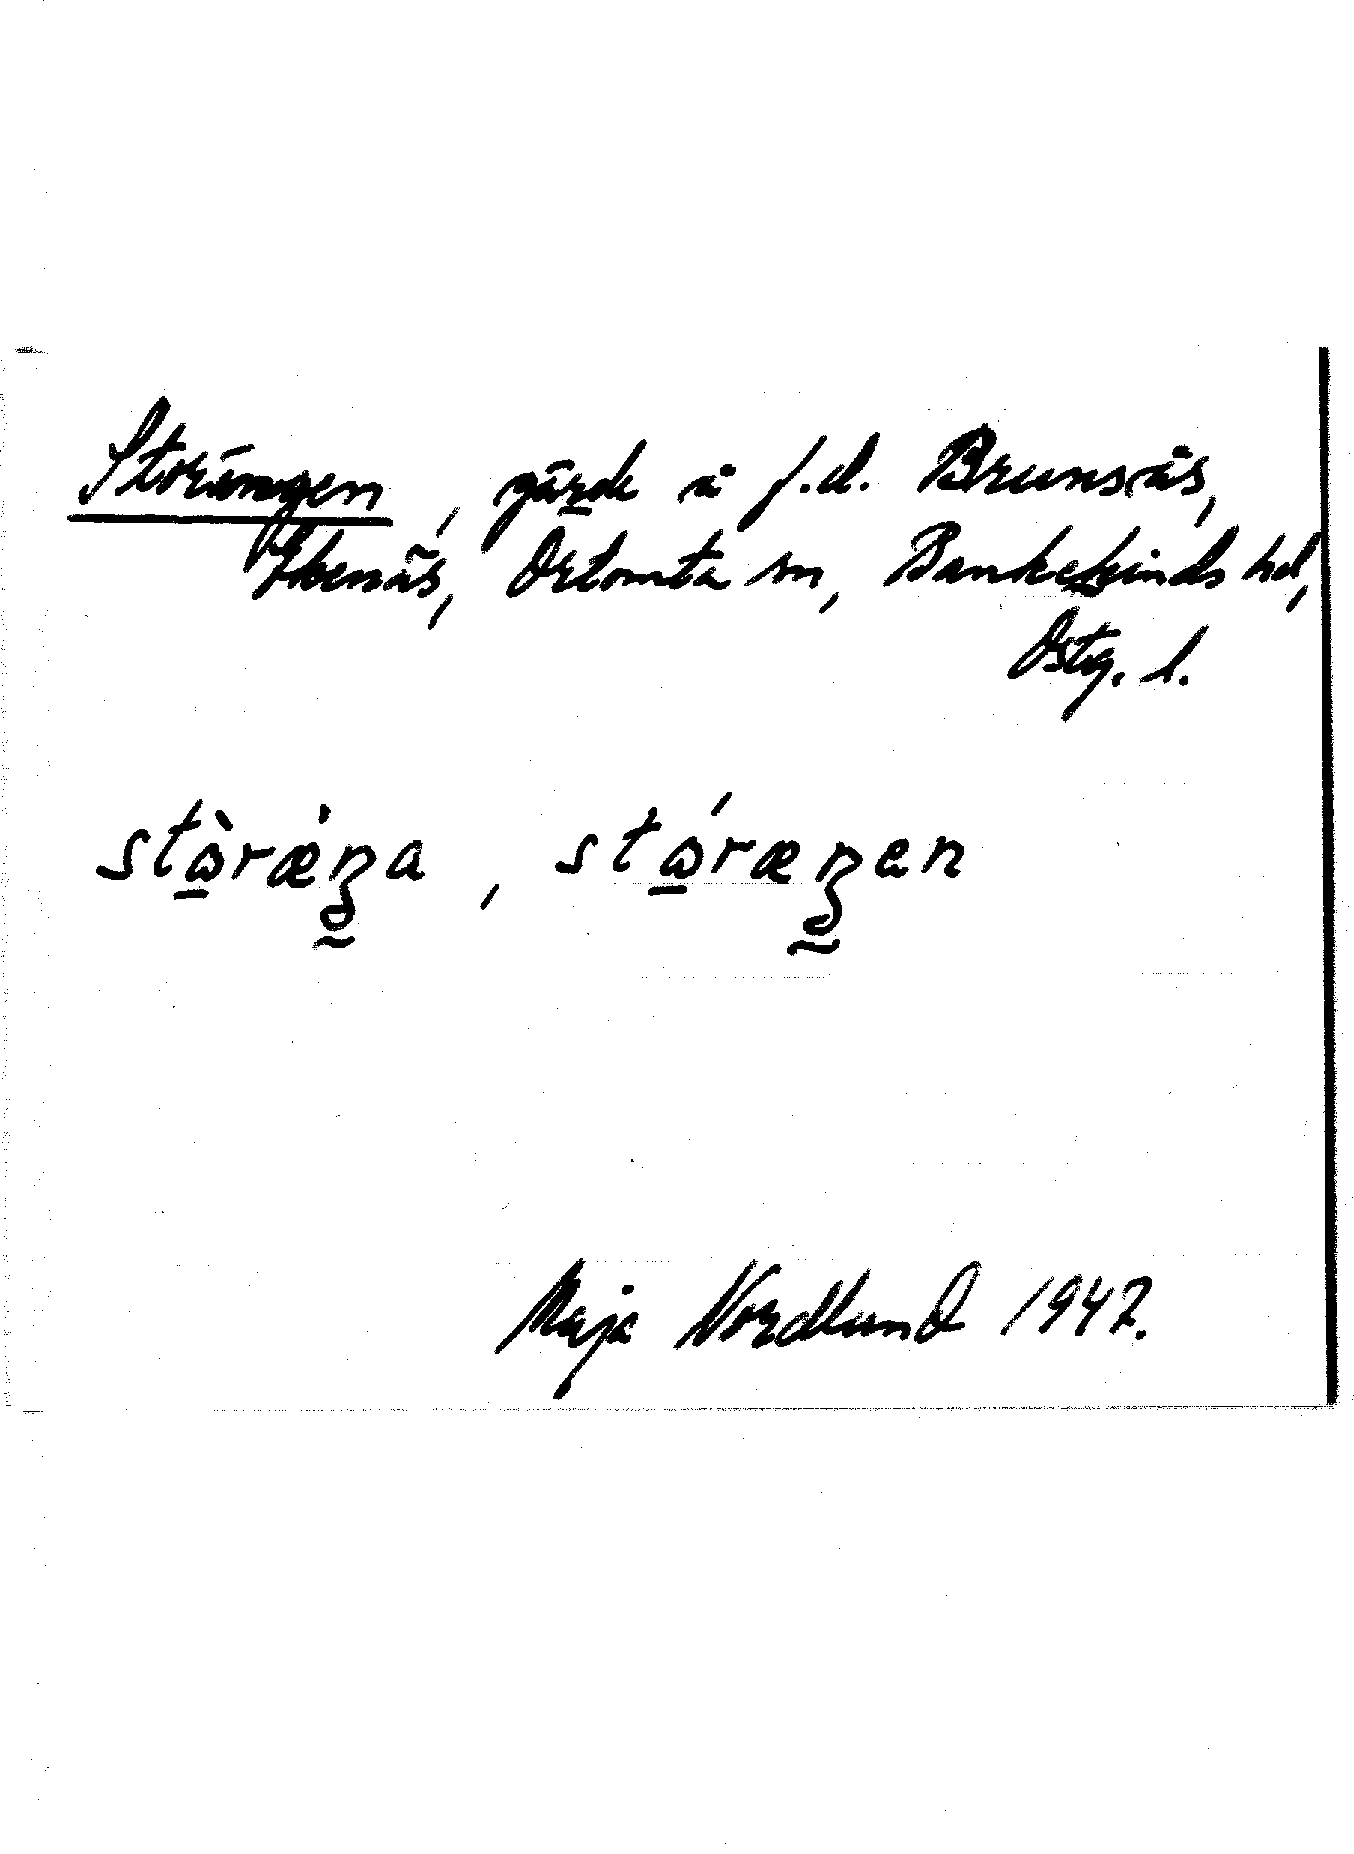 Storängen, gärde å f.d. Brunsäs,
Ekenäs, Örtomta sn, Bankekinds hd,
Östg. l.
stɷ̀ræ̀ŋa, stɷ́ræŋen
Maja Nordlund 1947.